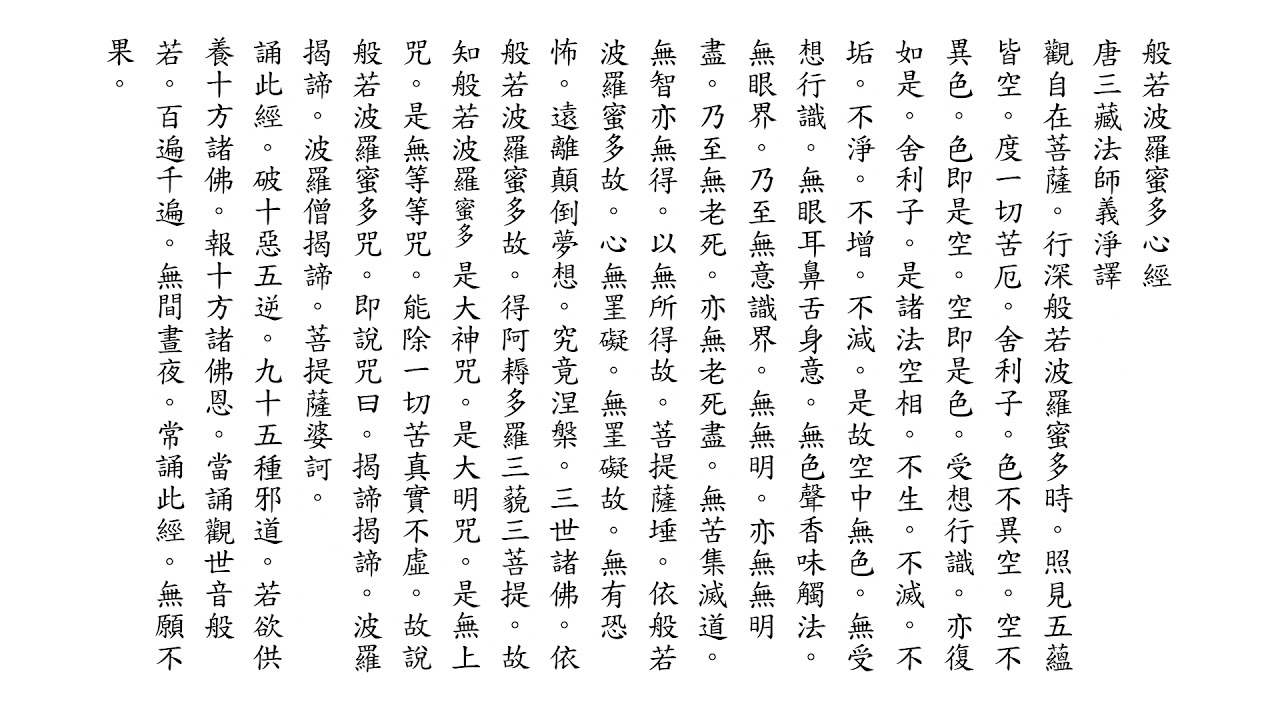 般若波羅蜜多心經
唐三藏法師義淨譯
觀自在菩薩。行深般若波羅蜜多時。照見五蘊
皆空。度一切苦厄。舍利子。色不異空。空不
異色。色即是空。空即是色。受想行識。亦復
如是。舍利子。是諸法空相。不生。不滅。不
垢。不淨。不增。不減。是故空中無色。無受
想行識。無眼耳鼻舌身意。無色聲香味觸法。
無眼界。乃至無意識界。無無明。亦無無明
盡。乃至無老死。亦無老死盡。無苦集滅道。
無智亦無得。以無所得故。菩提薩埵。依般若
波羅蜜多故。心無罣礙。無罣礙故。無有恐
怖。遠離顛倒夢想。究竟涅槃。三世諸佛。依
般若波羅蜜多故。得阿耨多羅三藐三菩提。故
知般若波羅蜜多是大神咒。是大明咒。是無上
咒。是無等等咒。能除一切苦真實不虛。故說
般若波羅蜜多咒。即說咒曰。揭諦揭諦。波羅
揭諦。波羅僧揭諦。菩提薩婆訶。
誦此經。破十惡五逆。九十五種邪道。若欲供
養十方諸佛。報十方諸佛恩。當誦觀世音般
若。百遍千遍。無間晝夜。常誦此經。無願不
果。